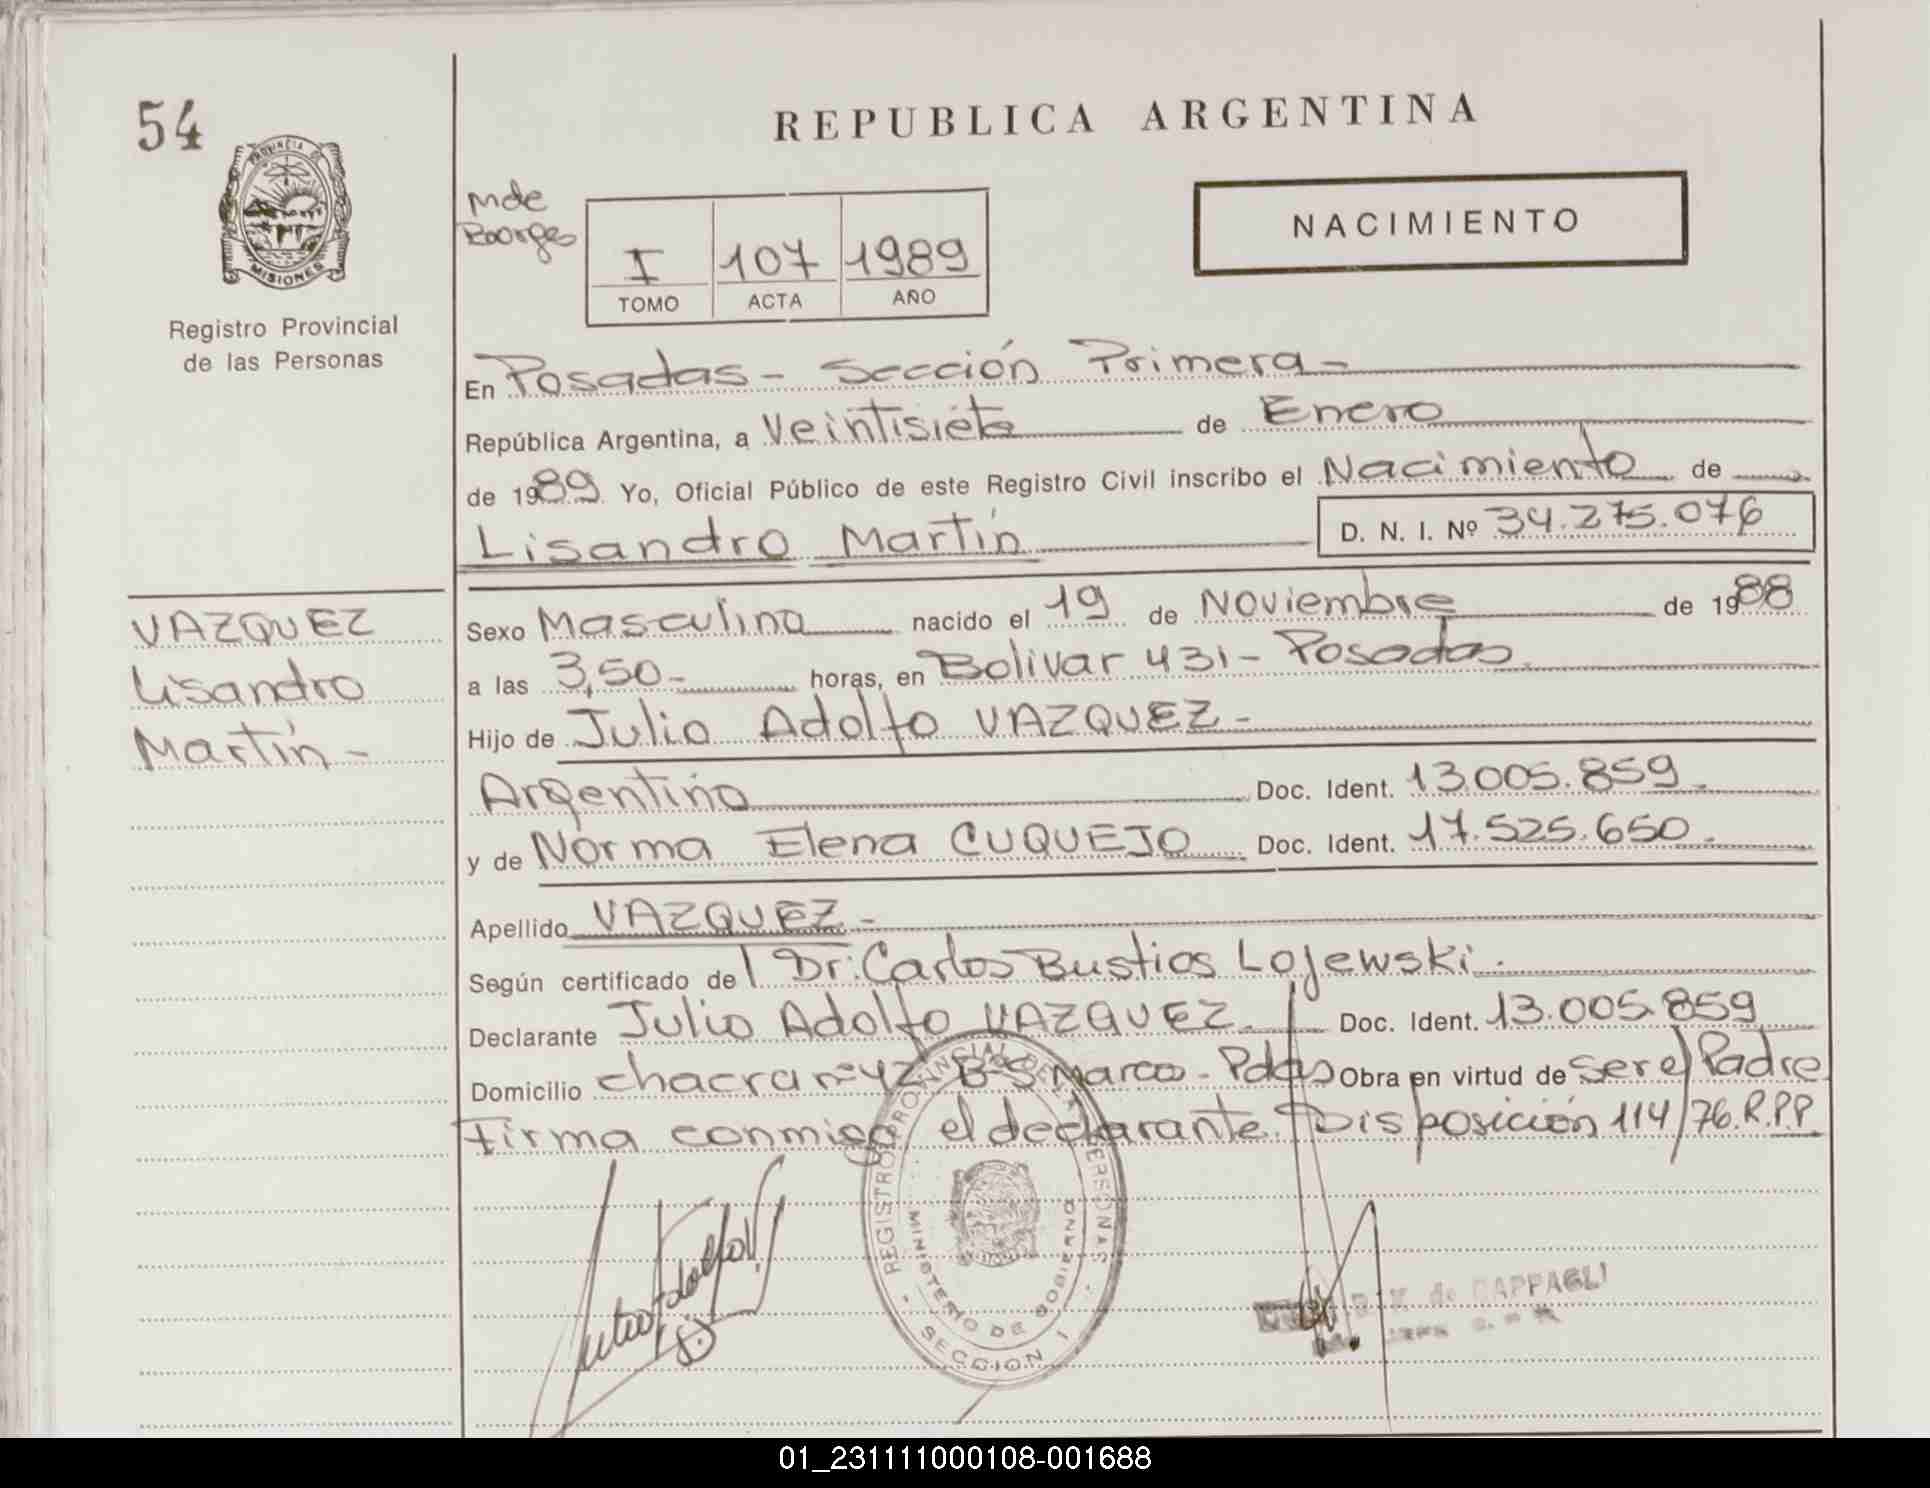 54
REPUBLICA ARGENTINA
PROVINCIA DE
MISIONES
Registro Provincial
de las Personas
Mde
Boorges
I 107 1989
TOMO ACTA AÑO
NACIMIENTO
En Posadas - Sección Primera -
República Argentina, a Veintisiete de Enero
de 1989 Yo, Oficial Público de este Registro Civil inscribo el Nacimiento de
Lisandro Martín D. N. I. Nº 34.275.076
VAZQUEZ
Lisandro
Martín -
Sexo Masculino nacido el 19 de Noviembre de 1988
a las 3,50- horas, en Bolivar 431 - Posadas
Hijo de Julio Adolfo VAZQUEZ -
Argentino Doc. Ident. 13.005.859.
y de Norma Elena CUQUEJO Doc. Ident. 17.525.650.
Apellido VAZQUEZ -
Según certificado del Dr. Carlos Bustios Lojewski.
Declarante Julio Adolfo VAZQUEZ. Doc. Ident. 13.005.859
Domicilio chacra nº 42 Bº S Marco - Pdas Obra en virtud de ser el Padre
Firma conmigo el declarante. Disposición 114/76.R.P.P.
REGISTRO PROVINCIAL DE LAS PERSONAS
MINISTERIO DE GOBIERNO
SECCION I
Julio Adolfo V.
de CAPPAGLI
01_231111000108-001688